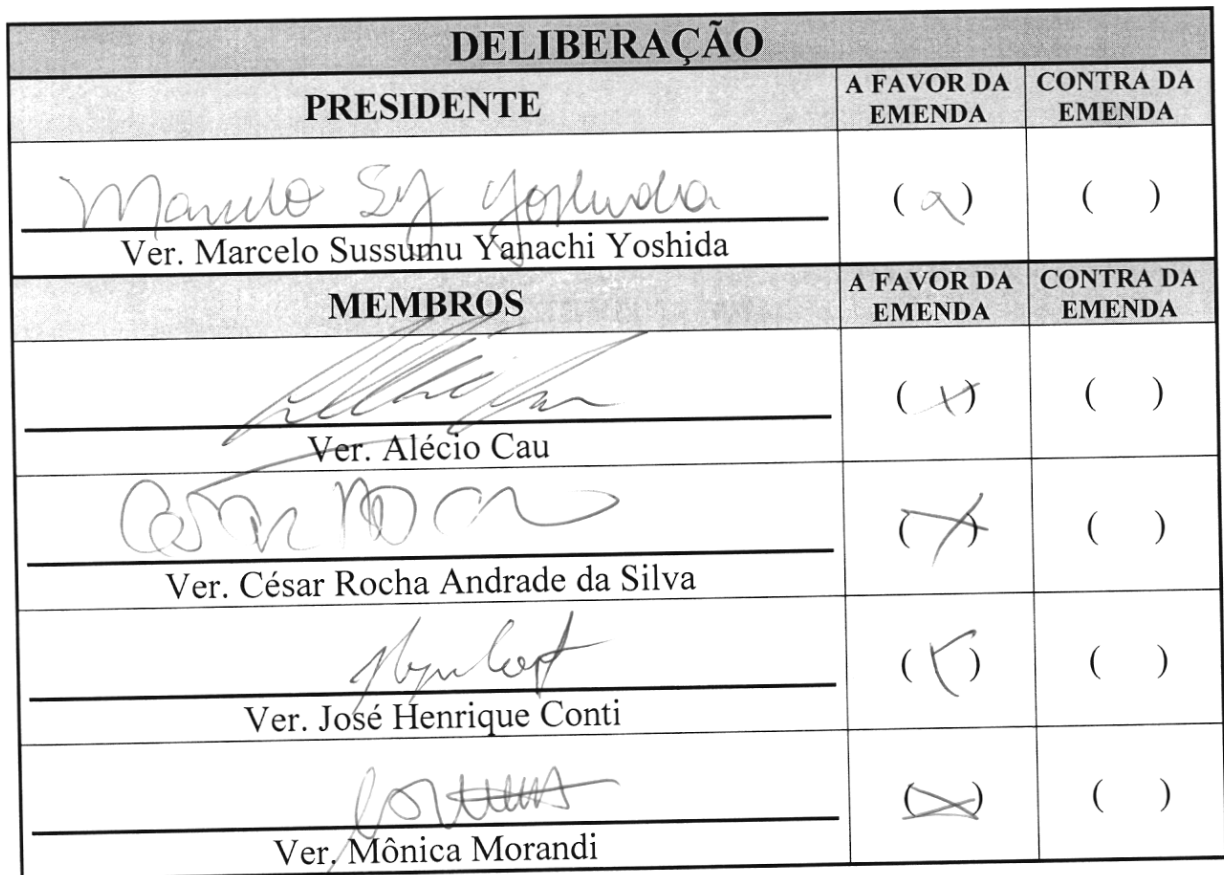 DELIBERAÇÃO
PRESIDENTE
A FAVOR DA EMENDA
CONTRA DA EMENDA
Marcelo Sy Yoshida
( x )
( )
Ver. Marcelo Sussumu Yanachi Yoshida
MEMBROS
A FAVOR DA EMENDA
CONTRA DA EMENDA
( x )
( )
Ver. Alécio Cau
César Rocha
( x )
( )
Ver. César Rocha Andrade da Silva
( x )
( )
Ver. José Henrique Conti
( x )
( )
Ver. Mônica Morandi